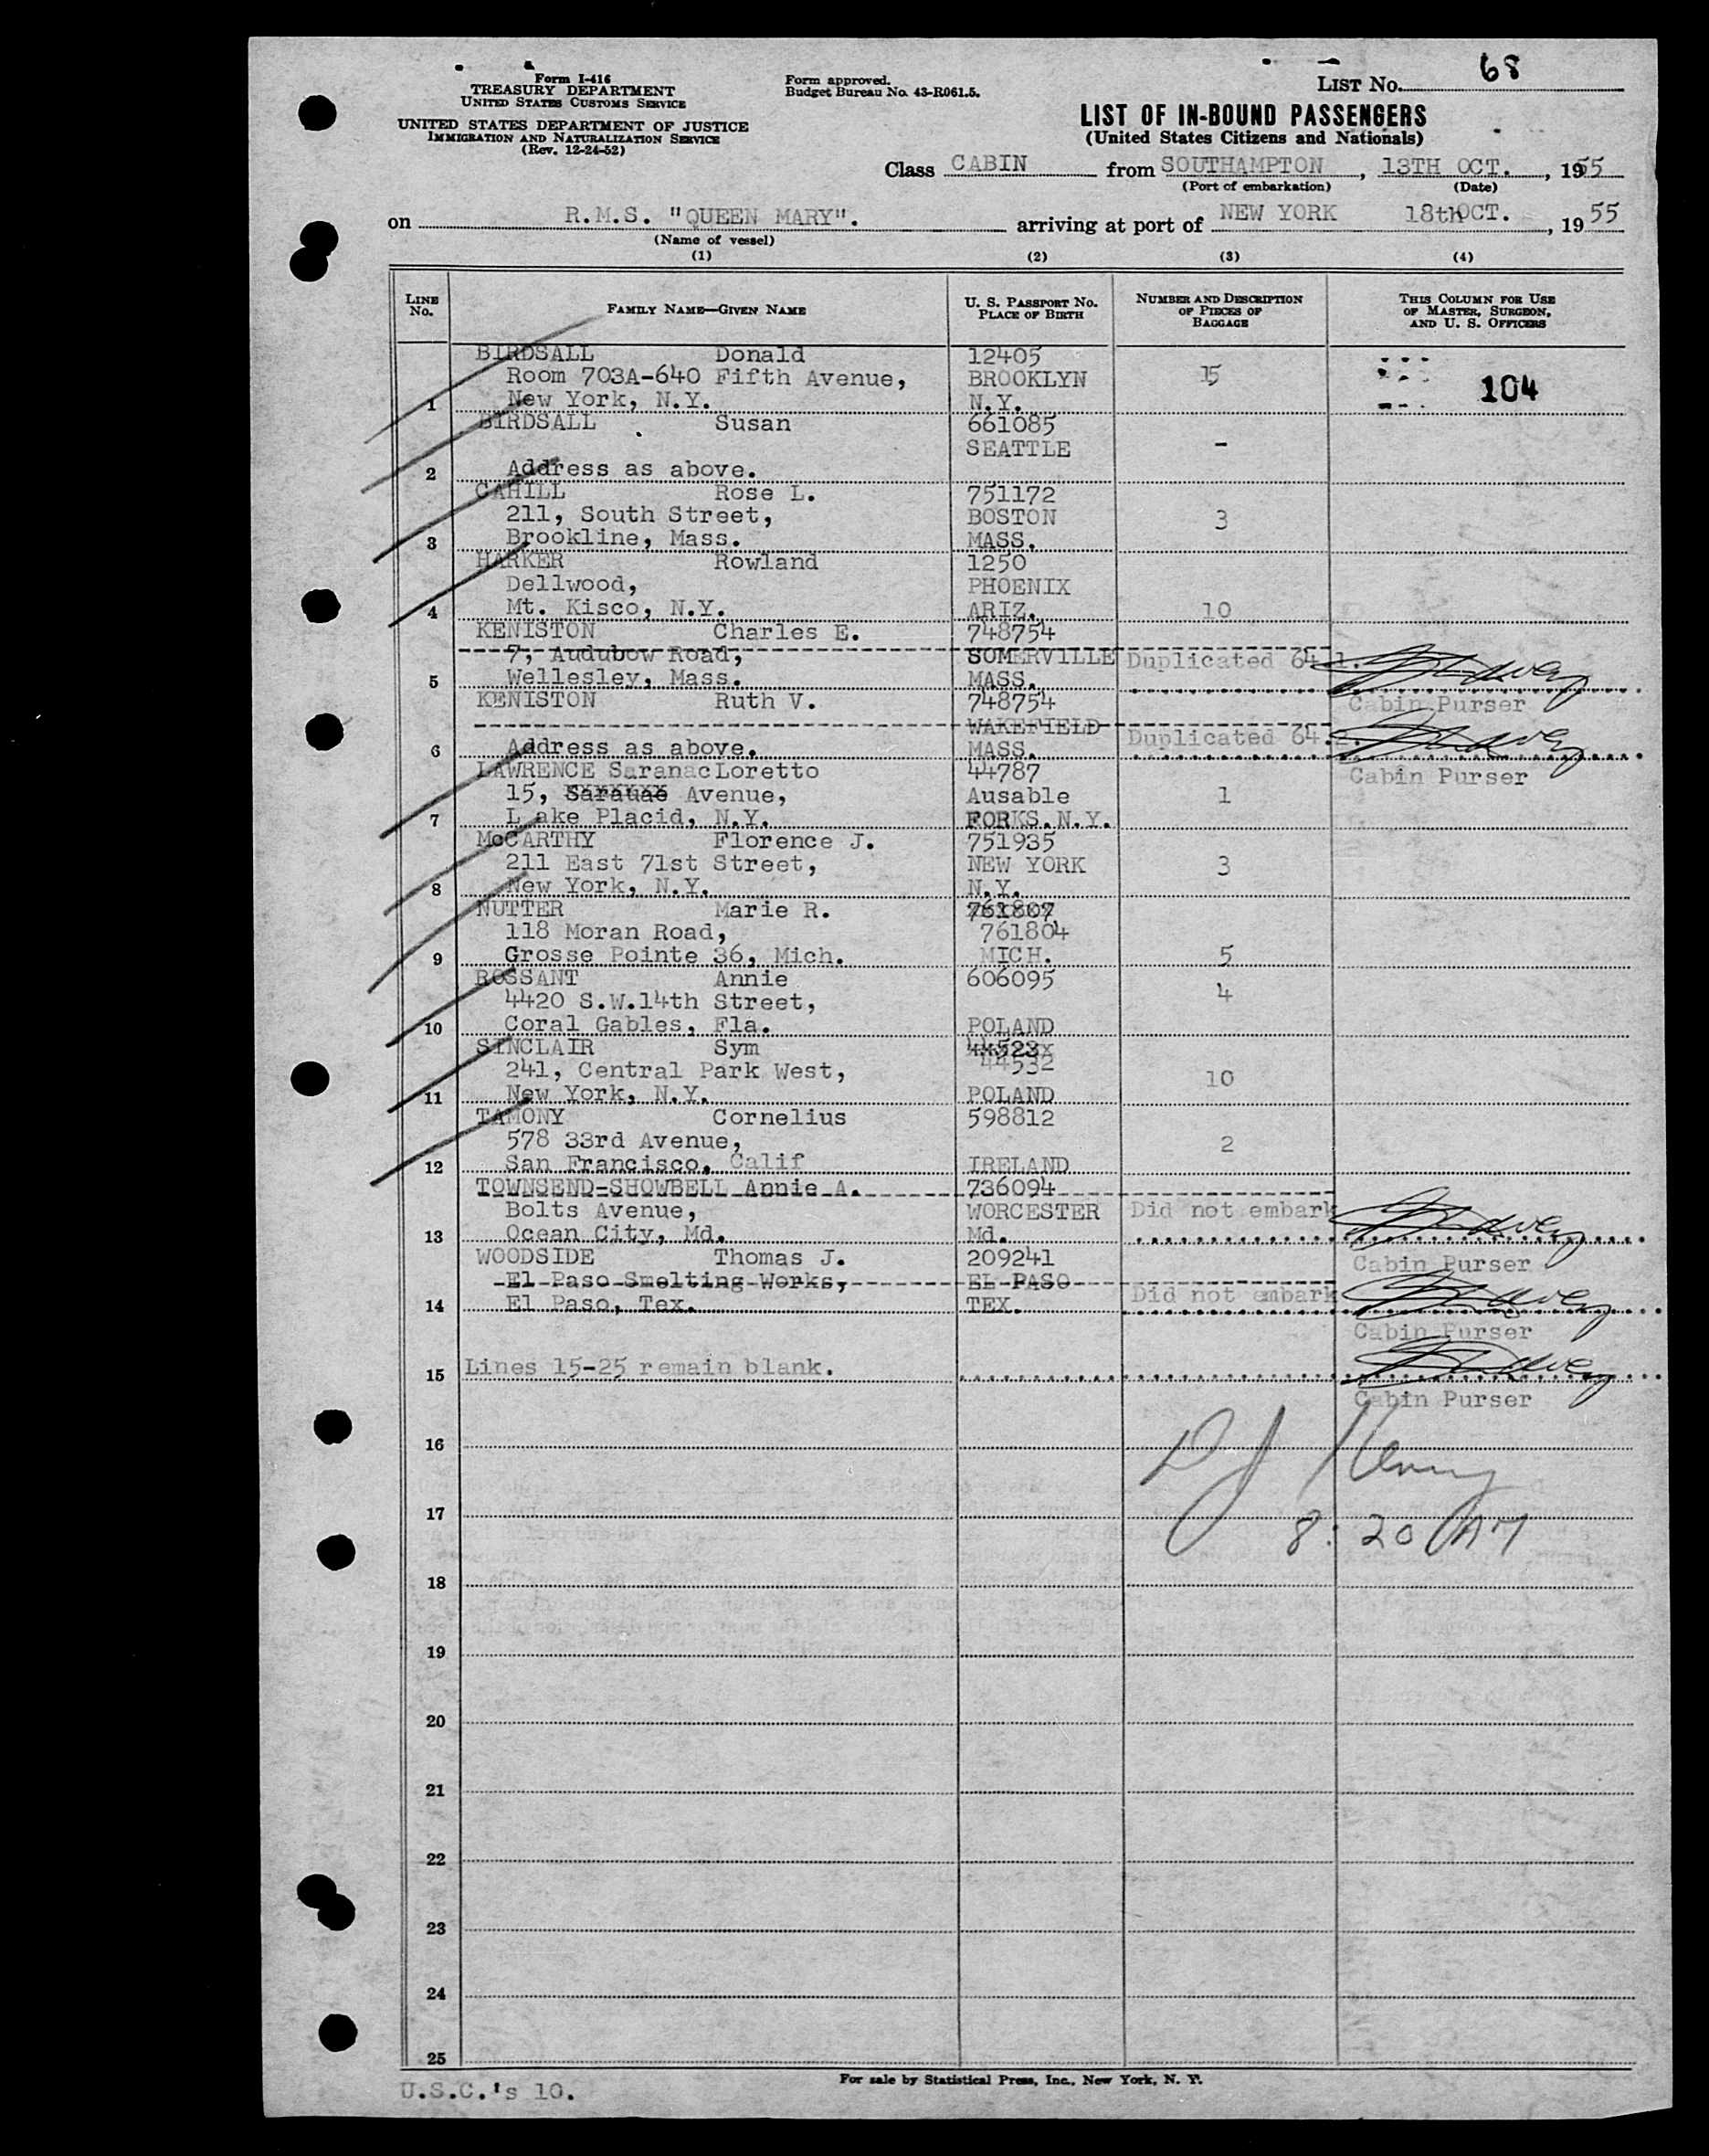 Form I-416
TREASURY DEPARTMENT
UNITED STATES CUSTOMS SERVICE
UNITED STATES DEPARTMENT OF JUSTICE
IMMIGRATION AND NATURALIZATION SERVICE
(Rev. 12-24-52)
Form approved.
Budget Bureau No. 43-R061.5.
LIST No. 68
LIST OF IN-BOUND PASSENGERS
(United States Citizens and Nationals)
Class CABIN from SOUTHAMPTON, 13TH OCT., 1955
(Port of embarkation) (Date)
on R.M.S. "QUEEN MARY". arriving at port of NEW YORK 18th OCT., 1955
(Name of vessel)
(1) (2) (3) (4)
LINE No. FAMILY NAME—GIVEN NAME U. S. PASSPORT No. PLACE OF BIRTH NUMBER AND DESCRIPTION OF PIECES OF BAGGAGE THIS COLUMN FOR USE OF MASTER, SURGEON, AND U. S. OFFICERS
BIRDSALL Donald 12405
Room 703A-640 Fifth Avenue, BROOKLYN 15 104
1 New York, N.Y. N.Y.
BIRDSALL Susan 661085
SEATTLE -
2 Address as above.
CAHILL Rose L. 751172
211, South Street, BOSTON 3
3 Brookline, Mass. MASS.
HARKER Rowland 1250
Dellwood, PHOENIX
4 Mt. Kisco, N.Y. ARIZ. 10
KENISTON Charles E. 748754
7, Audubow Road, SOMERVILLE Duplicated 64.1.
5 Wellesley, Mass. MASS.
KENISTON Ruth V. 748754 Cabin Purser
WAKEFIELD Duplicated 64.2.
6 Address as above. MASS.
LAWRENCE Saranac Loretto 44787 Cabin Purser
15, Sarauac Avenue, Ausable 1
7 L ake Placid, N.Y. FORKS. N.Y.
McCARTHY Florence J. 751935
211 East 71st Street, NEW YORK 3
8 New York, N.Y. N.Y.
NUTTER Marie R. 761807
118 Moran Road, 761804
9 Grosse Pointe 36, Mich. MICH. 5
ROSSANT Annie 606095
4420 S.W.14th Street, 4
10 Coral Gables, Fla. POLAND
SINCLAIR Sym 44523x
241, Central Park West, 44532 10
11 New York, N.Y. POLAND
TAMONY Cornelius 598812
578 33rd Avenue, 2
12 San Francisco, Calif IRELAND
TOWNSEND-SHOWBELL Annie A. 736094
Bolts Avenue, WORCESTER Did not embark
13 Ocean City, Md. Md.
WOODSIDE Thomas J. 209241 Cabin Purser
El Paso Smelting Works, EL PASO Did not embark
14 El Paso, Tex. TEX.
Cabin Purser
15 Lines 15-25 remain blank.
Cabin Purser
16
17 8:20 AM
18
19
20
21
22
23
24
25
For sale by Statistical Press, Inc., New York, N. Y.
U.S.C.'s 10.